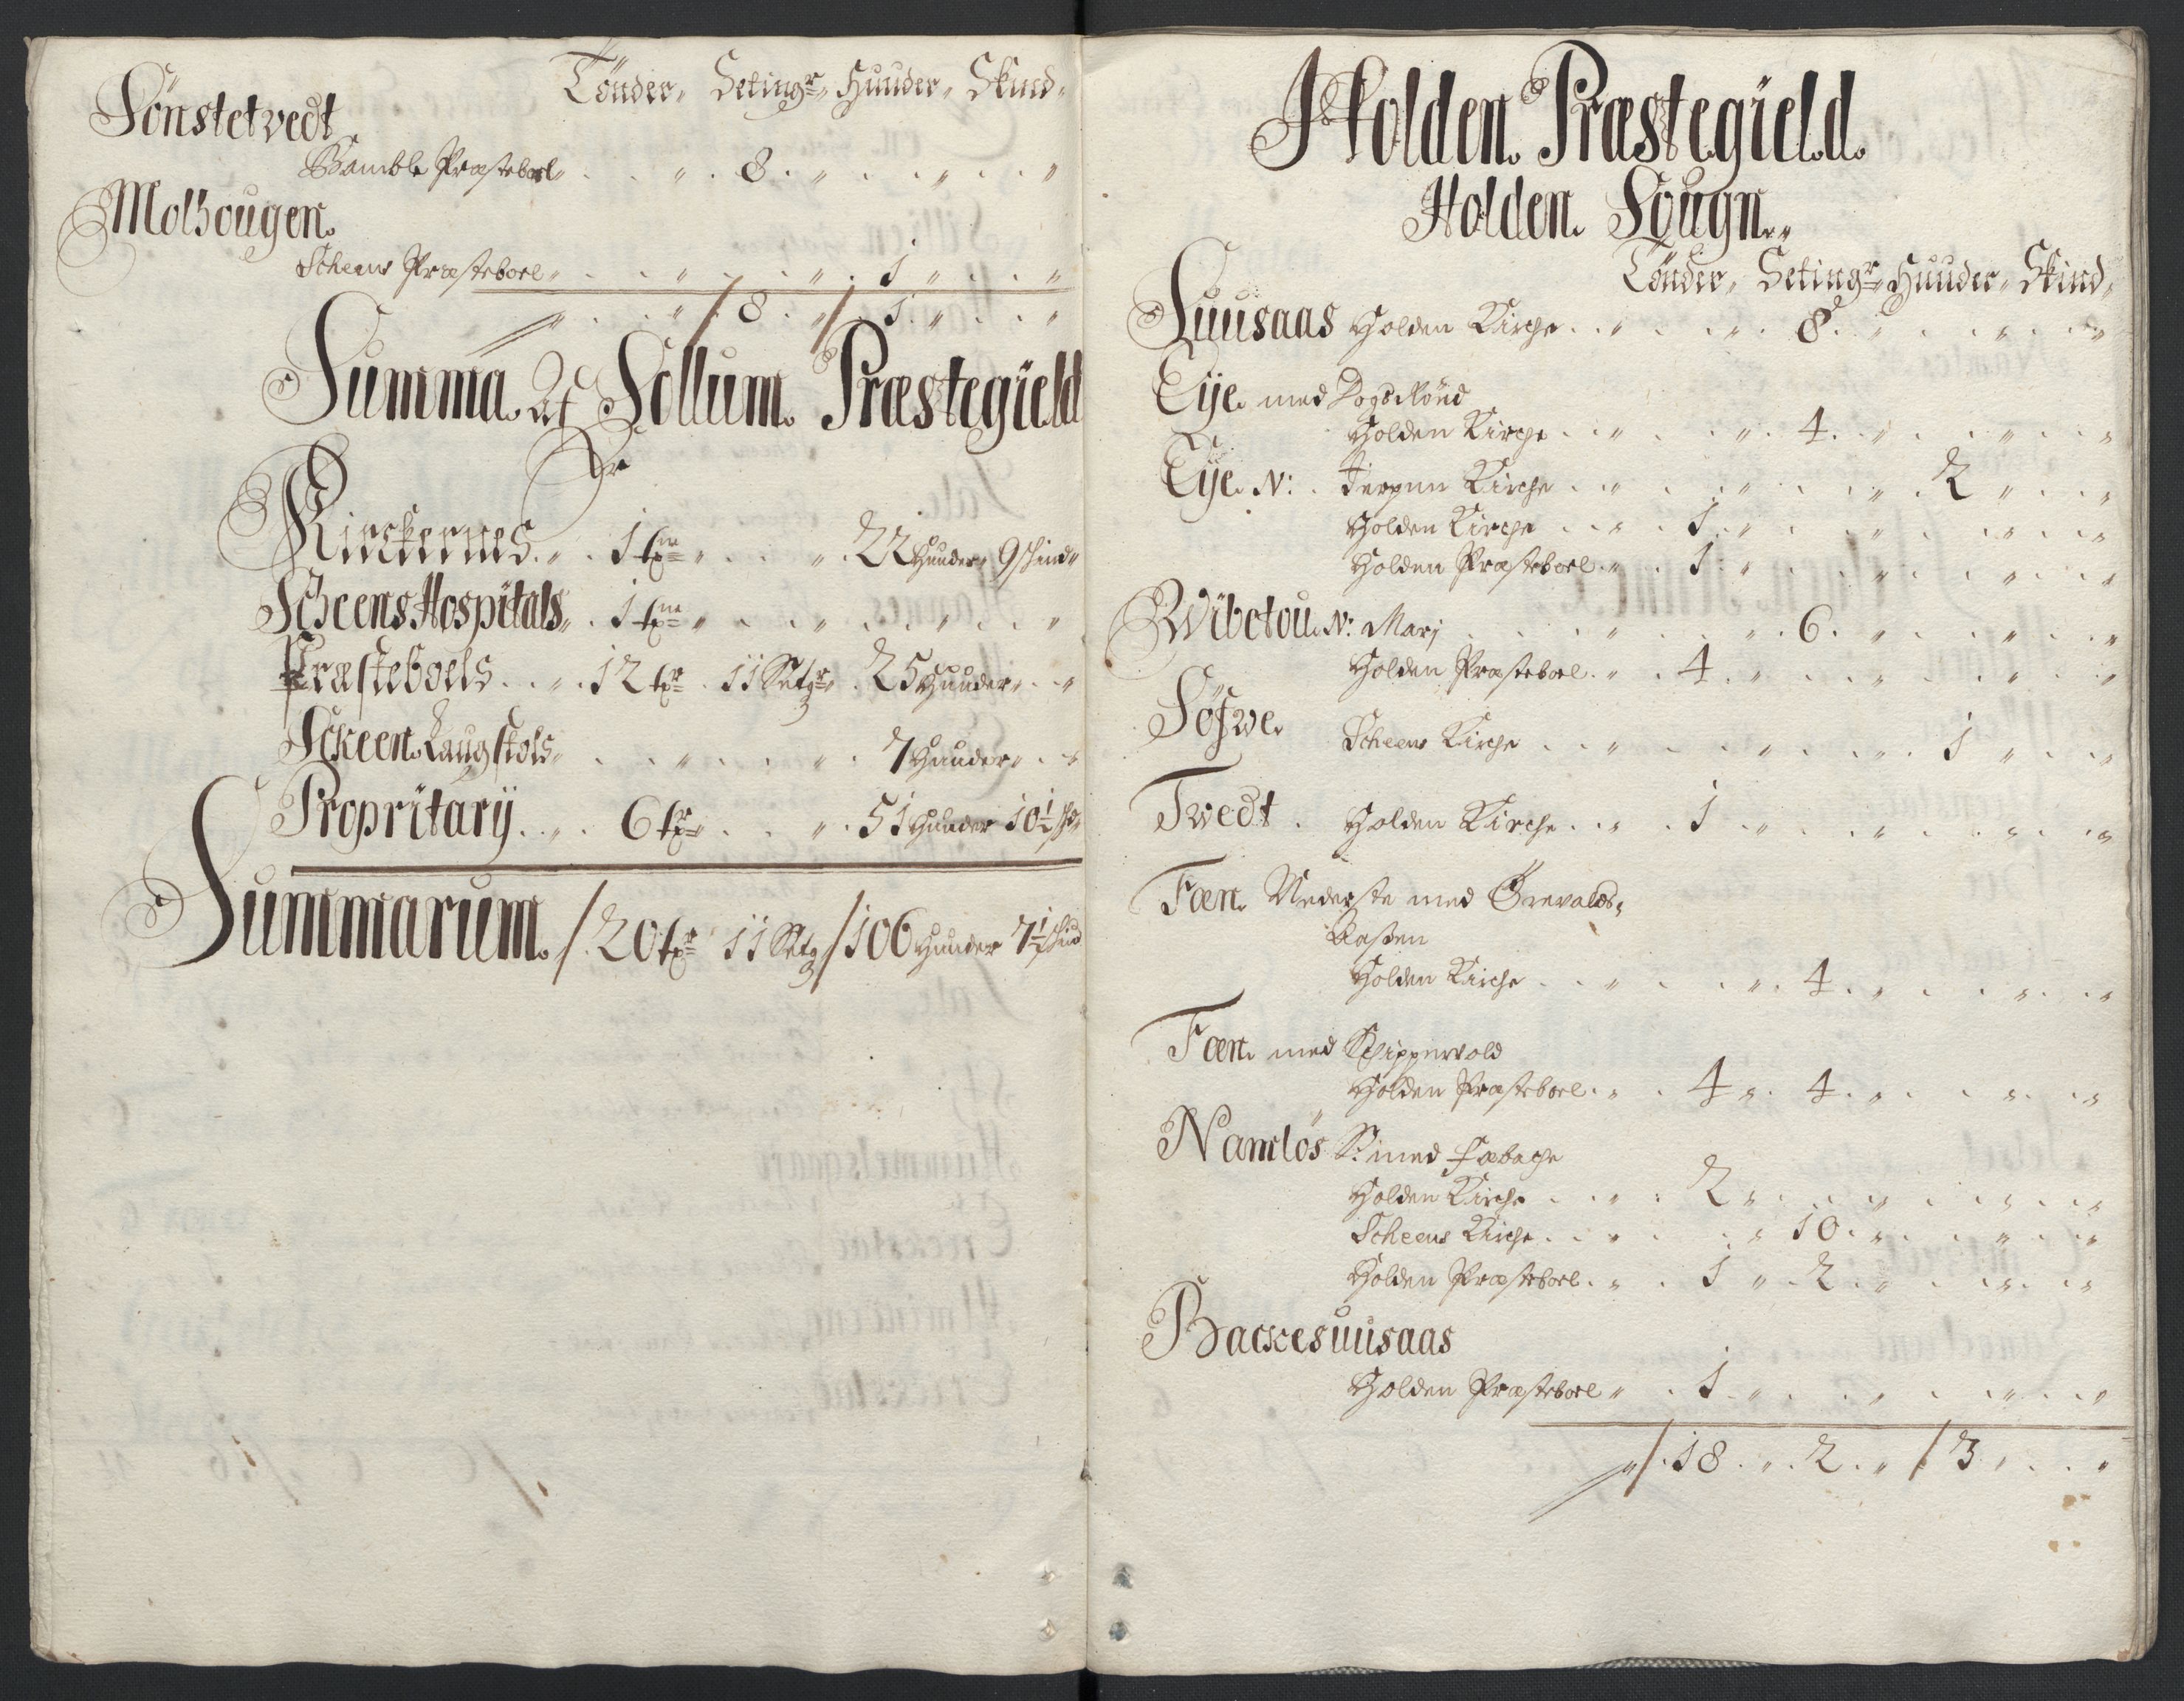 Tönder, Setingr Huuder, Skind
Sönstetvedt
Bamble Præsteboel " . . " . 8 . " . . " . . "
Molhougen.
Scheens Præsteboel " . . " . . " . 1 " . . "
" . . " / 8 . " / 1 . " . . "
Summa. Af Sollum. Præstegield
Er
Kirckernes. " . 1 tne " . . " . 22 Huuder, 9 skind "
Scheens Hospitals, . 1 tne " . . " . . " . . "
Præsteboels . . " . 12 tr . 11 Setgr . 25 Huuder, . "
Scheen. Laugstols, . . " . . " . 7 Huuder, . "
Propritarij . . " . 6 tr " . . " . 51 Huuder 10½ sk
Summarum. / 20 tr 11 Setg / 106 Huuder 7½ skind
Holden. Præstegield.
Holden. Sougn.
Tönder, Setingr Huuder, Skind,
Suusaas Holden Kirche . . " . . " . 8 . " . . " . . "
Eye. med
Holden Kirche . . " . . " . 4 . " . . " . . "
Eye. N: . Kirche . . " . . " . . " . 2 " . . "
Holden Kirche . . " . 1 . " . . " . . " . . "
Holden Præsteboel . " . 1 . " . . " . . " . . "
Wibetou. N: Marj . . . " . . " . 6 . " . . " . . "
Holden Præsteboel . " . 4 . " . . " . . " . . "
Söfwe.
Scheens Kirche . . " . . " . . " . 1 " . . "
Twedt . Holden Kirche . . " . 1 . " . . " . . " . . "
Fæn. Nederste med Grevalds,
Aasen
Holden Kirche . . " . . " . 4 . " . . " . . "
Fæn. med Skippervold
Holden Præsteboel . " . 4 " . 4 . " . . " . . "
Namlös S: med Fæbache
Holden Kirche . . " . 2 " . . " . . " . . "
Scheens Kirche . . " . . " 10 . " . . " . . "
Holden Præsteboel . " . 1 " . 2 . " . . " . . "
Backesuusaas
Holden Præsteboel " . 1 . " . . " . . " . . "
" / . 18 . " . 2 . " / 3 " . . "